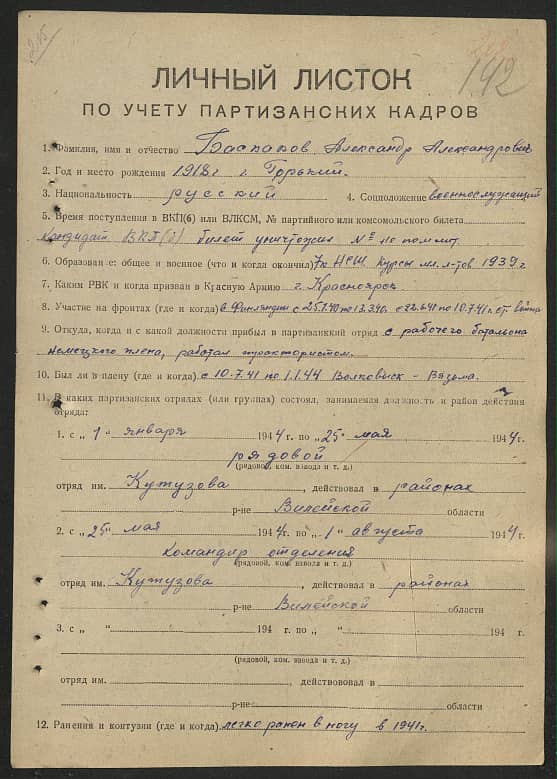 215
142
ЛИЧНЫЙ ЛИСТОК
ПО УЧЕТУ ПАРТИЗАНСКИХ КАДРОВ
1. Фамилия, имя и отчество Баспаков Александр Александрович
2. Год и место рождения 1918 г г. Горький.
3. Национальность русский 4. Соцположение военнослужащий
5. Время поступления в ВКП(б) или ВЛКСМ, № партийного или комсомольского билета
Кандидат ВКП(б) билет уничтожил № не помнит
6. Образование: общее и военное (что и когда окончил) 7 кл НСШ Курсы мл. л-тов 1939 г
7. Каким РВК и когда призван в Красную Армию г. Красноярск
8. Участие на фронтах (где и когда) в Финляндии с 25.1.40 по 13.3.40г. с 22.6.41 по 10.7.41 г. от. война
9. Откуда, когда и с какой должности прибыл в партизанский отряд с рабочего батальона
немецкого плена, работал трактористом.
10. Был ли в плену (где и когда) с 10.7.41 по 1.1.44 Волковыск - Вязьма.
11. В каких партизанских отрядах (или группах) состоял, занимаемая должность и район действия
отряда:
1. с „1" января 1944 г. по „25" мая 1944 г.
рядовой
(рядовой, ком. взвода и т. д.)
отряд им. Кутузова, действовал в районах
р-не Вилейской области
2. с „25" мая 1944 г. по „1" августа 1944 г.
командир отделения
(рядовой, ком. взвода и т. д.)
отряд им. Кутузова, действовал в районах
р-не Вилейской области
3. с „ " 194 г. по „ " 194 г.
(рядовой, ком. взвода и т. д.)
отряд им. , действововал в
р-не области
12. Ранения и контузии (где и когда) легко ранен в ногу в 1941 г.